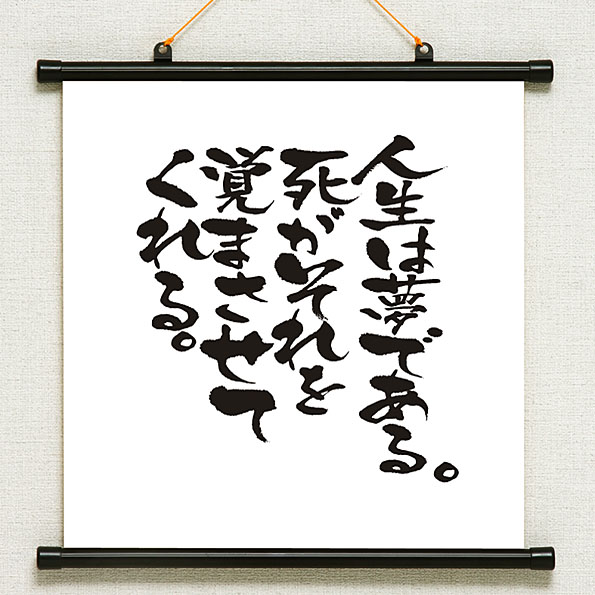 人生は夢である。
死がそれを
覚まさせて
くれる。